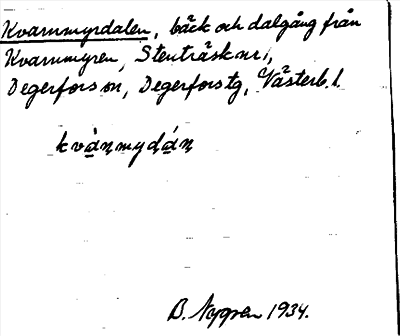 Kvarnmyrdalen, bäck och dalgång från
Kvarnmyren, Stenträsk nr 1,
Degerfors sn, Degerfors tg, Västerb. l.
kvànmydán
B. Nygren 1934.